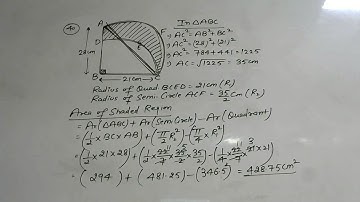 40
A
D
28cm
B
21cm
C
E
F
In △ABC
⇒ AC² = AB² + BC²
⇒ AC² = (28)² + (21)²
⇒ AC² = 784 + 441 = 1225
⇒ AC = √1225 = 35cm
Radius of Quad BCED = 21cm (R₁)
Radius of Semi Circle ACF = 35/2 cm (R₂)
Area of Shaded Region
= Ar(△ABC) + Ar(Semi Circle) - Ar(Quadrant)
= (1/2 × BC × AB) + (π/2 R₂²) - (π/4 R₁²)
= (1/2 × 21 × 28) + (1/2 × 22/7 × 35/2 × 35/2) - (1/4 × 22/7 × 21 × 21)
= (294) + (481.25) - (346.5) = 428.75cm²